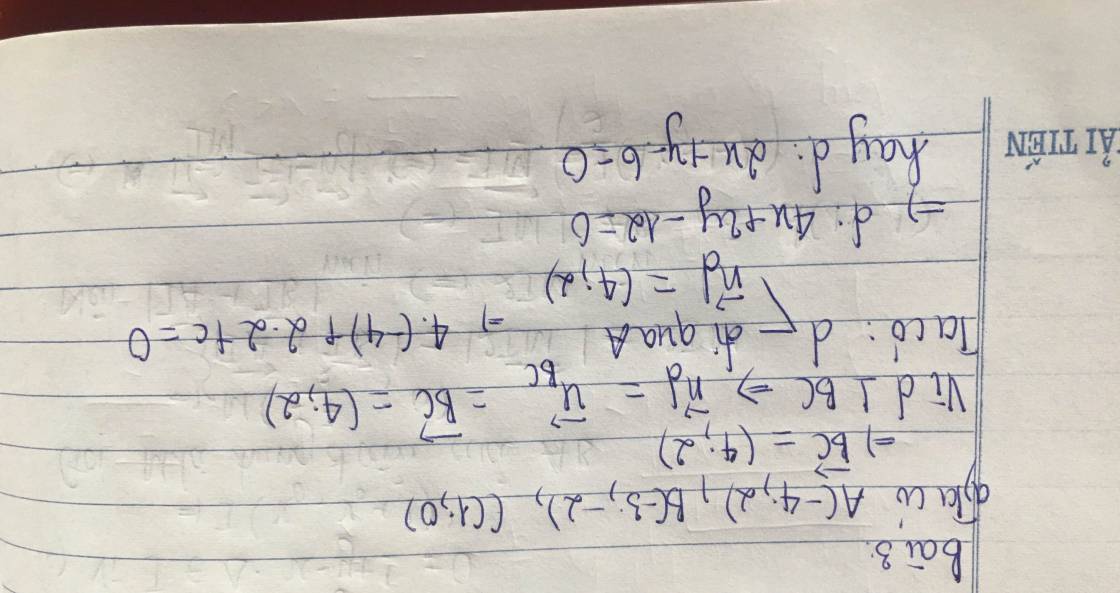 Bài 3:
a, Ta có A(-4; 2), B(-3; -2), C(1; 0)
=> \vec{BC} = (4; 2)
Vì d ⊥ BC => \vec{n}d = \vec{u}BC = \vec{BC} = (4; 2)
Ta có: d đi qua A => 4.(-4) + 2.2 + c = 0
\vec{n}d = (4; 2)
=> d: 4x + 2y - 12 = 0
hay d: 2x + y - 6 = 0
ẢI TIẾN